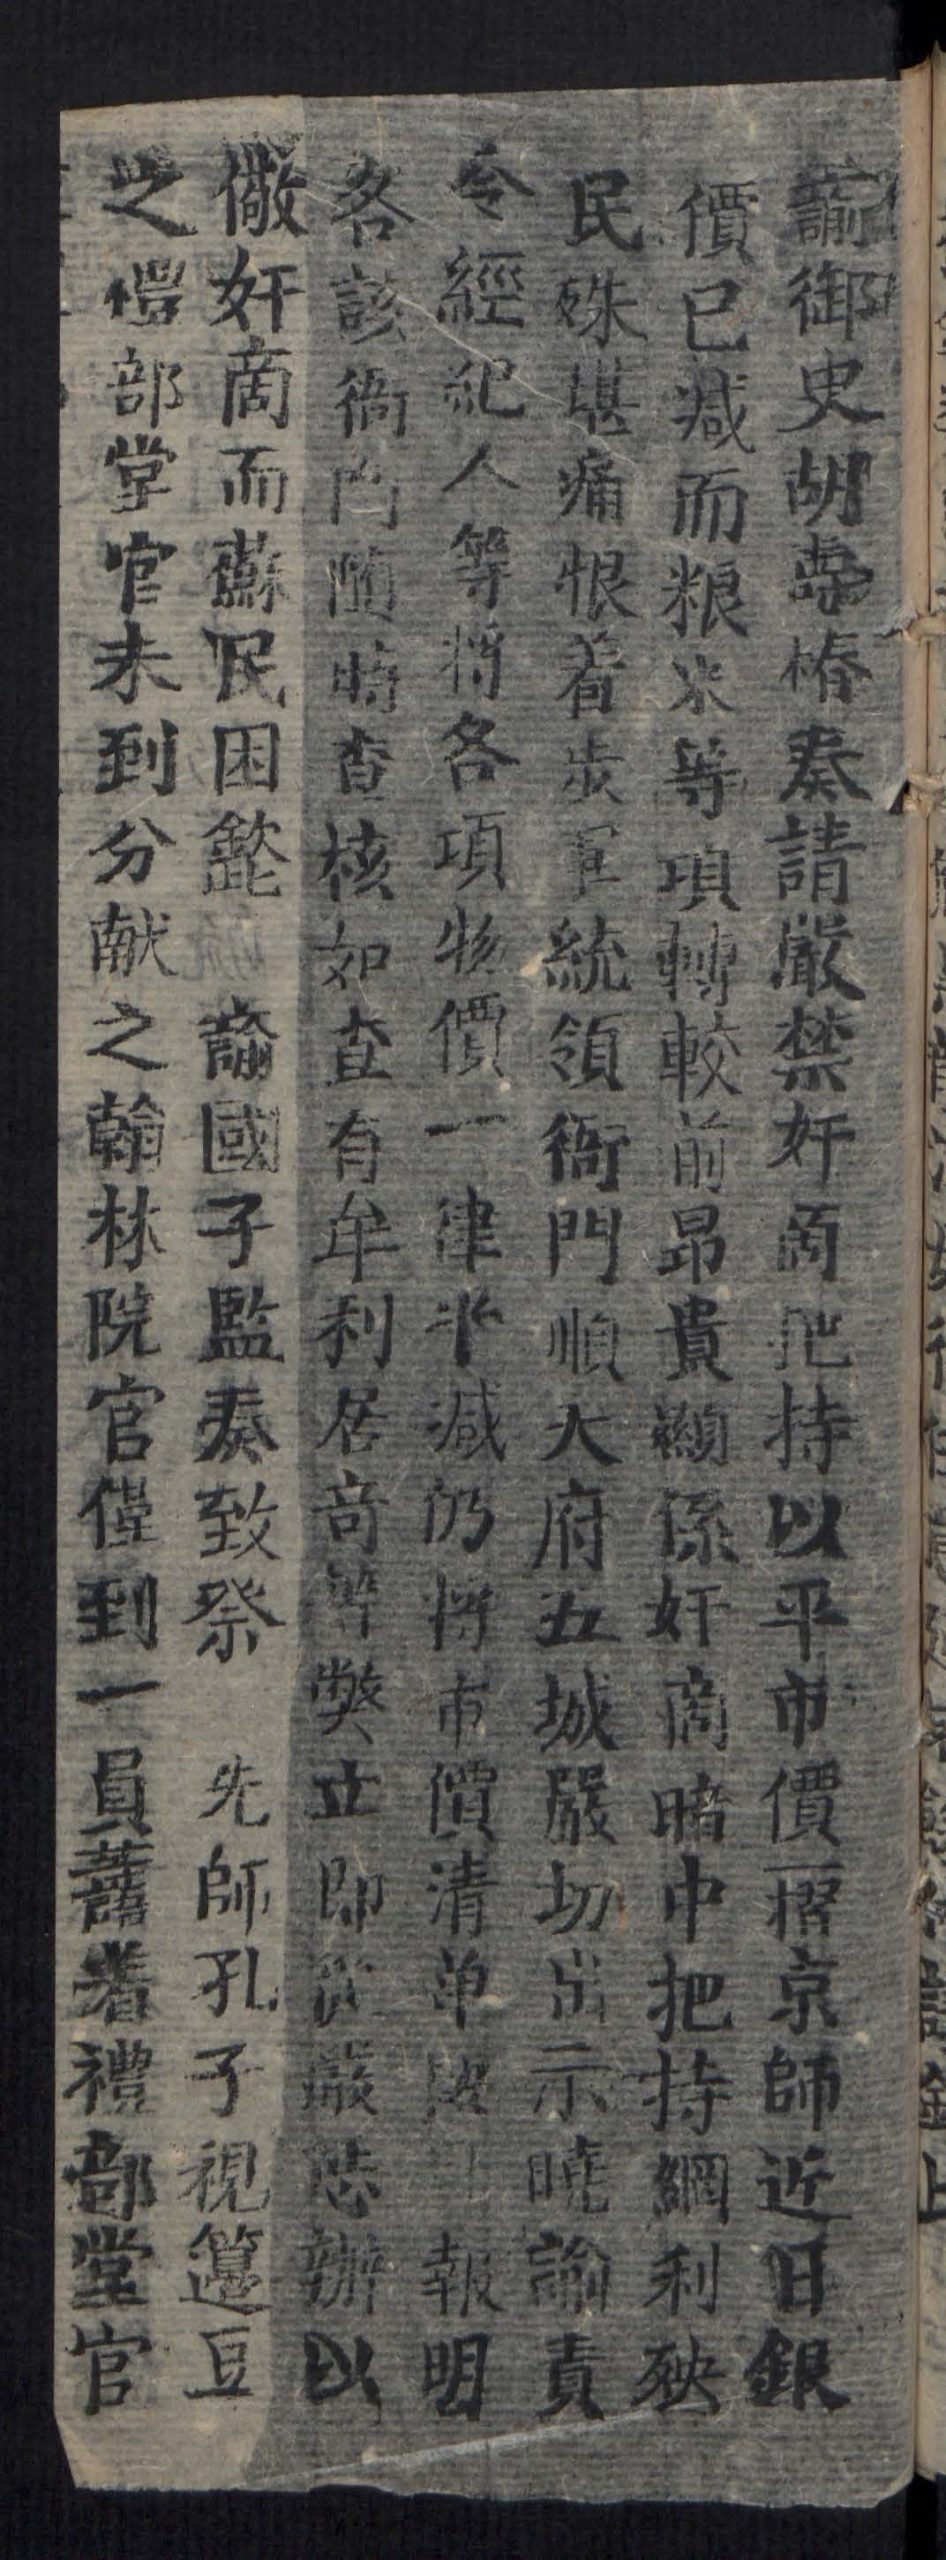 諭御史胡壽椿奏請嚴禁奸商把持以平市價一摺京師近日銀
價已减而粮米等項轉較前昂貴顯係奸商暗中把持網利殃
民殊堪痛恨着步軍統領衙門順天府五城嚴切出示曉諭責
令經紀人等將各項物價一律平减仍將市價清单 報明
各該衙門隨時查核如查有牟利居奇等獘立即從嚴懲辦以
儆奸商而蘇民困欽 諭國子監奏致祭 先師孔子視籩豆
之禮部堂官未到分献之翰林院官僅到一員着禮部堂官